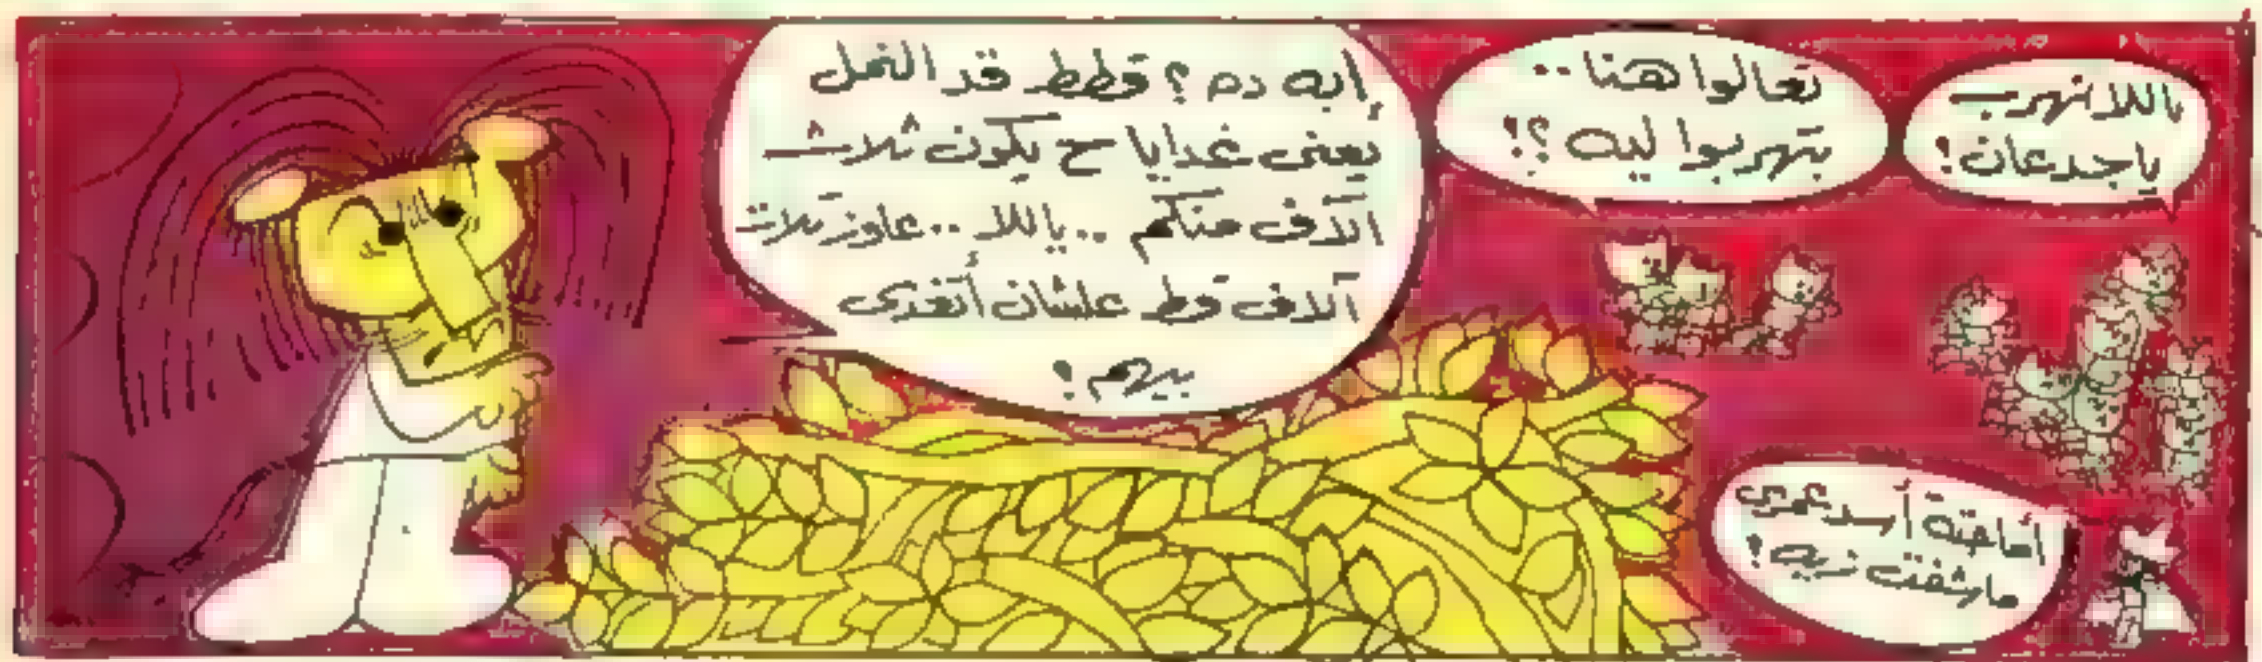 ياللا نهرب
ياجدعان!
تعالوا هنا ..
بتهربوا ليه؟!
إيه ده؟ قطط قد النمل
يعنى غدايا ح يكون ثلاث
آلاف منكم .. ياللا .. عاوز تلات
آلاف قط علشان أتغدى
بيهم!
أما حتة أسد عمرى
ماشفت زيه!